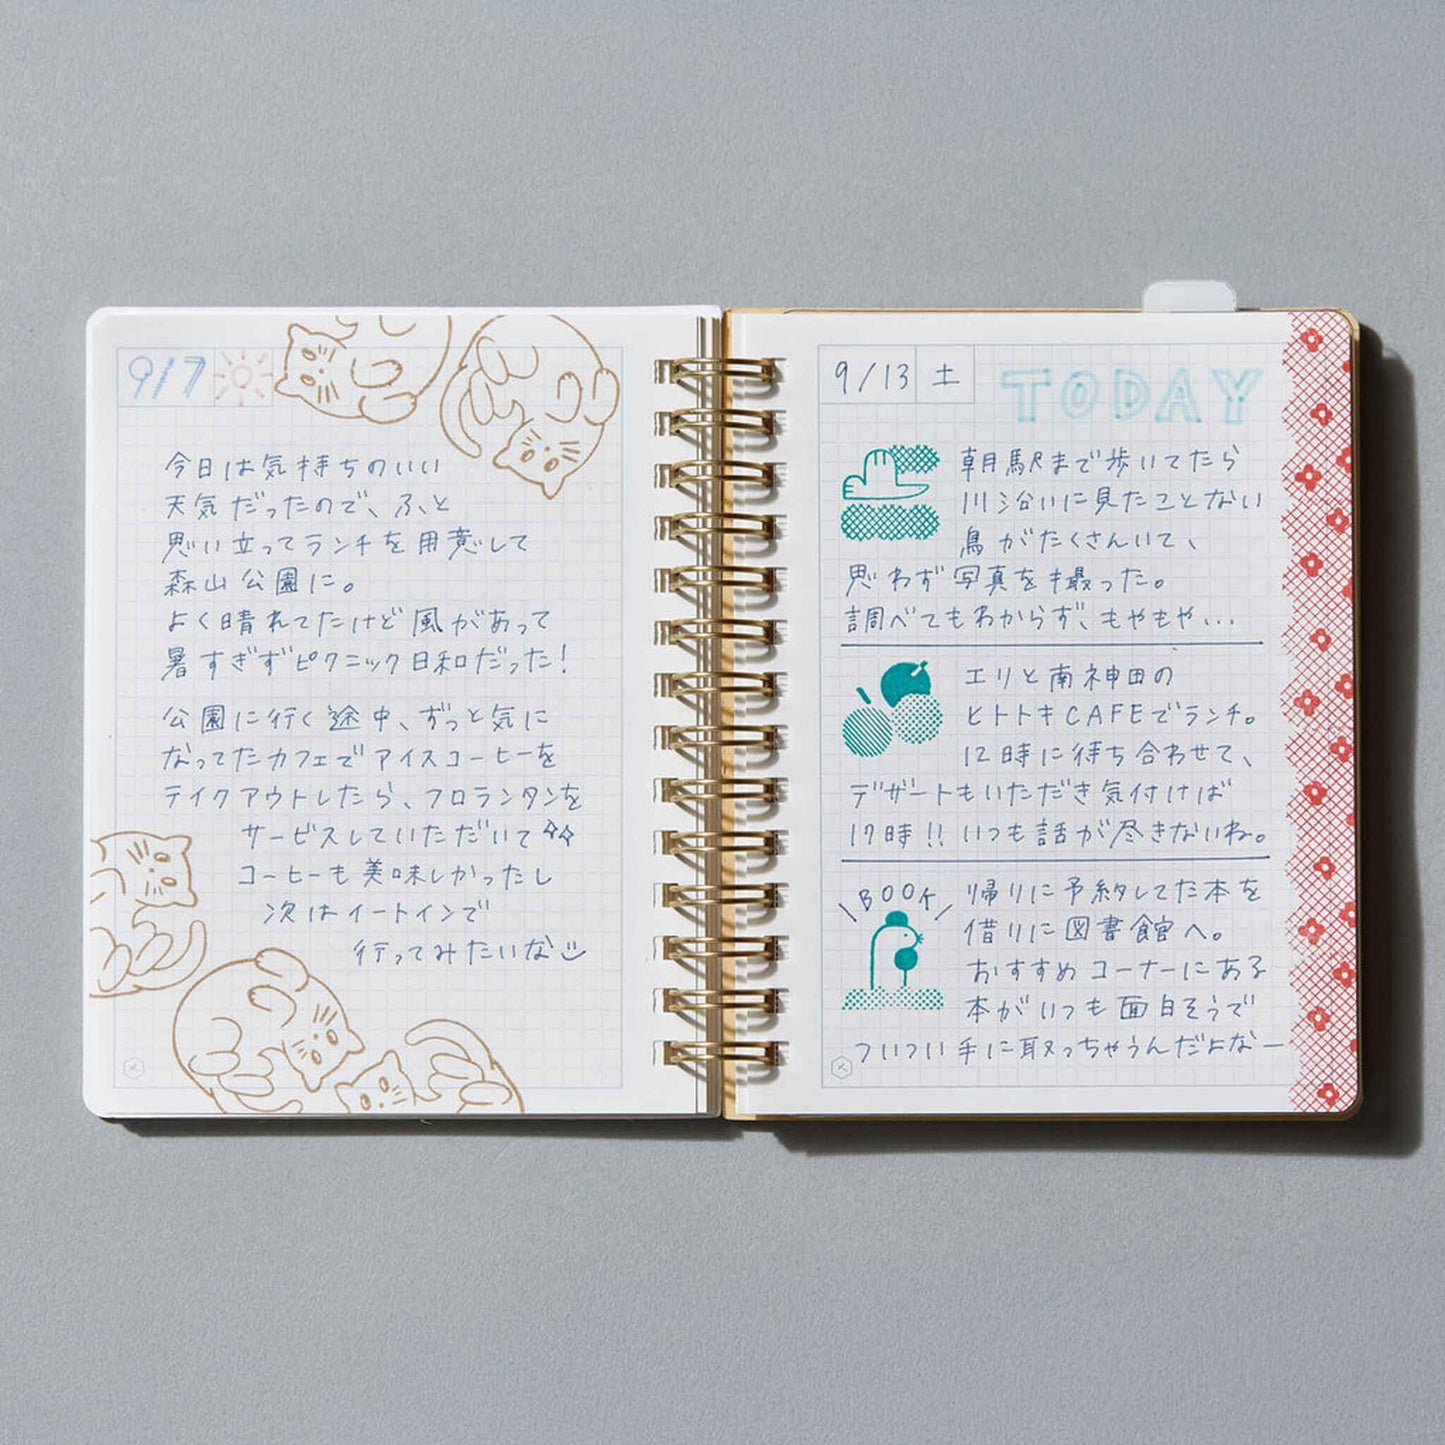 9/7
今日は気持ちのいい
天気だったので、ふと
思い立ってランチを用意して
森山公園に。
よく晴れてたけど風があって
暑すぎずピクニック日和だった!
公園に行く途中、ずっと気に
なってたカフェでアイスコーヒーを
テイクアウトしたら、フロランタンを
サービスしていただいて
コーヒーも美味しかったし
次はイートインで
行ってみたいな
9/13 土
TODAY
朝駅まで歩いてたら
川沿いに見たことない
鳥がたくさんいて、
思わず写真を撮った。
調べてもわからず、もやもや...
エリと南神田の
ヒトトキCAFEでランチ。
12時に待ち合わせて、
デザートもいただき気付けば
17時!!いつも話が尽きないね。
BOOK
帰りに予約してた本を
借りに図書館へ。
おすすめコーナーにある
本がいつも面白そうで
ついつい手に取っちゃうんだよなー